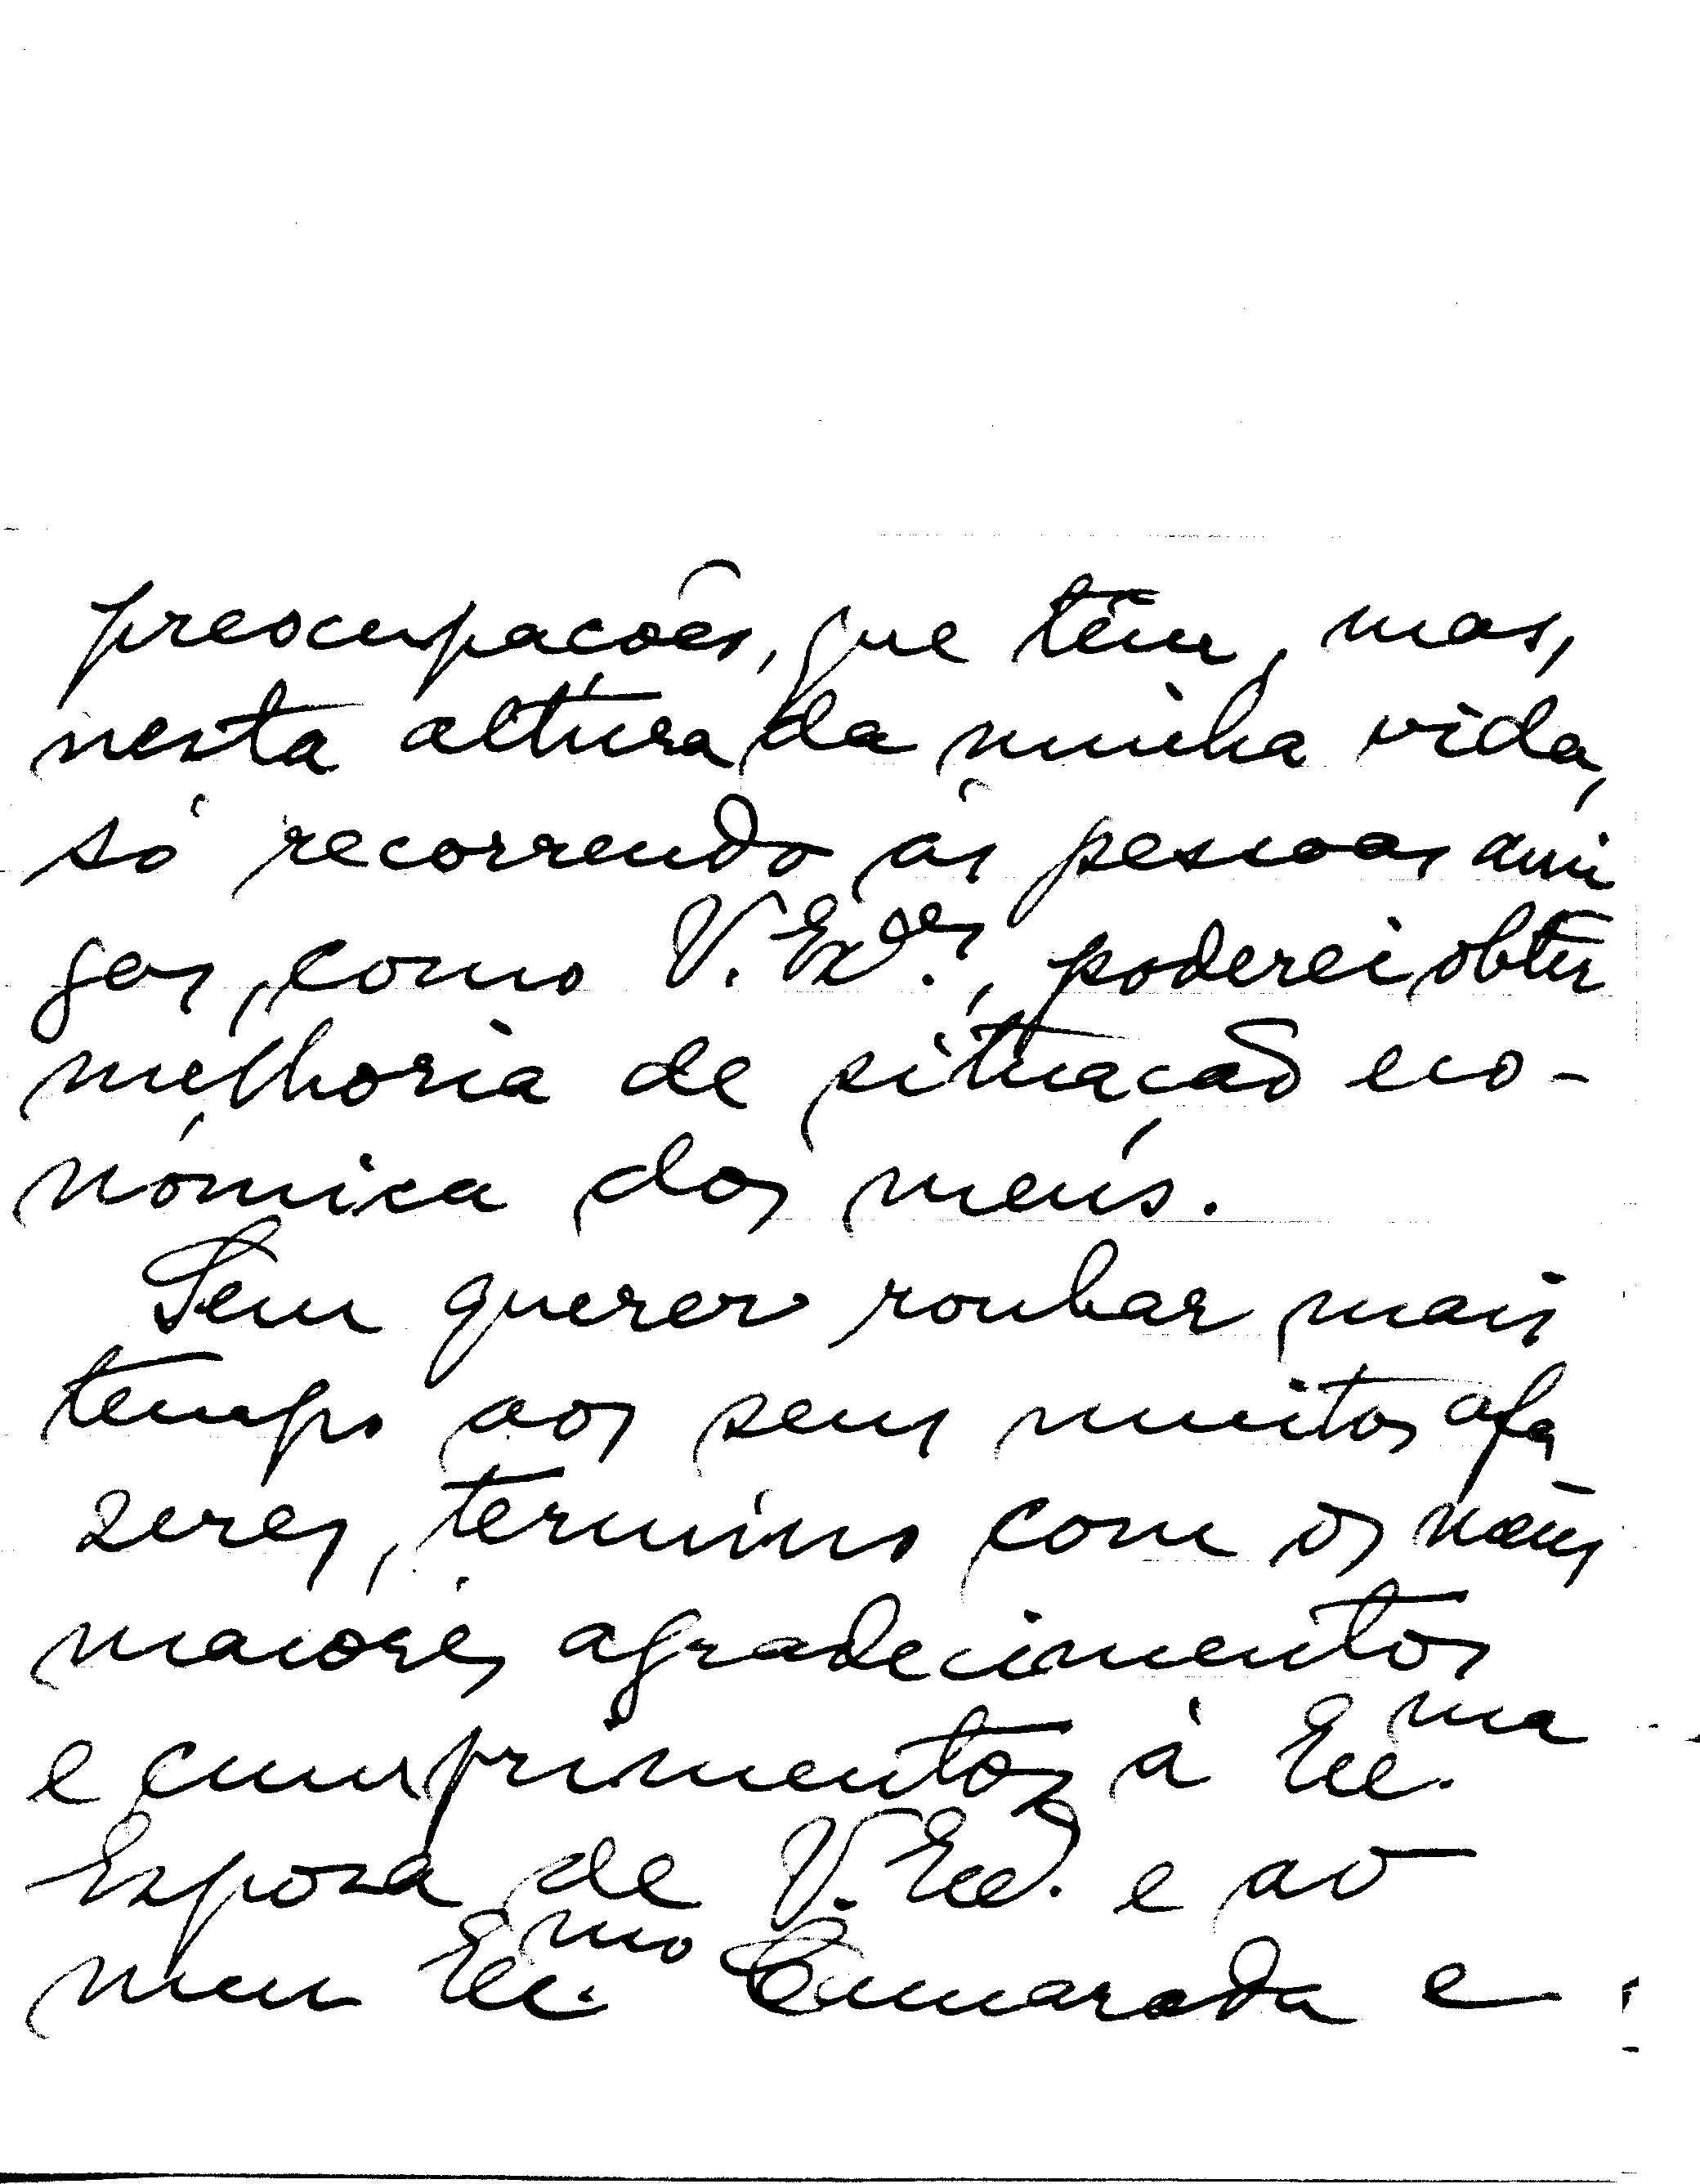 preocupações, que têm, mas,
nesta altura da minha vida,
só recorrendo às pessoas ami
gas, como V. Ex.as, poderei obter
melhoria de situação eco-
nómica dos meus.
Sem querer roubar mais
tempo aos seus muitos afa
zeres, termino com os meus
maiores agradecimentos
e cumprimentos à Exc.ma
Espoza de V. Exc. e ao
meu Exc.mo Camarada e